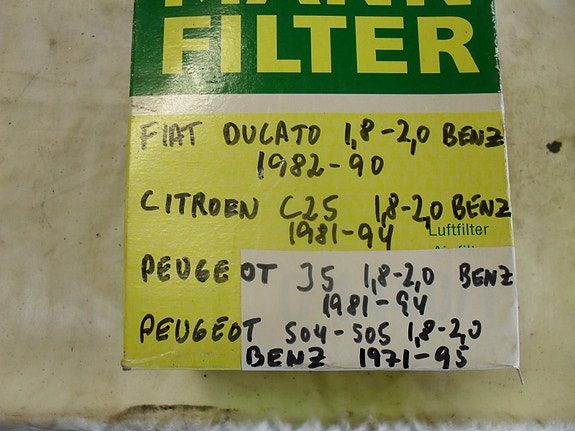 MANN
FILTER
FIAT DUCATO 1,8-2,0 BENZ
1982-90
CITROEN C25 1,8-2,0 BENZ
1981-94
Luftfilter
Air filter
PEUGEOT J5 1,8-2,0 BENZ
1981-94
PEUGEOT 504-505 1,8-2,0
BENZ 1971-95